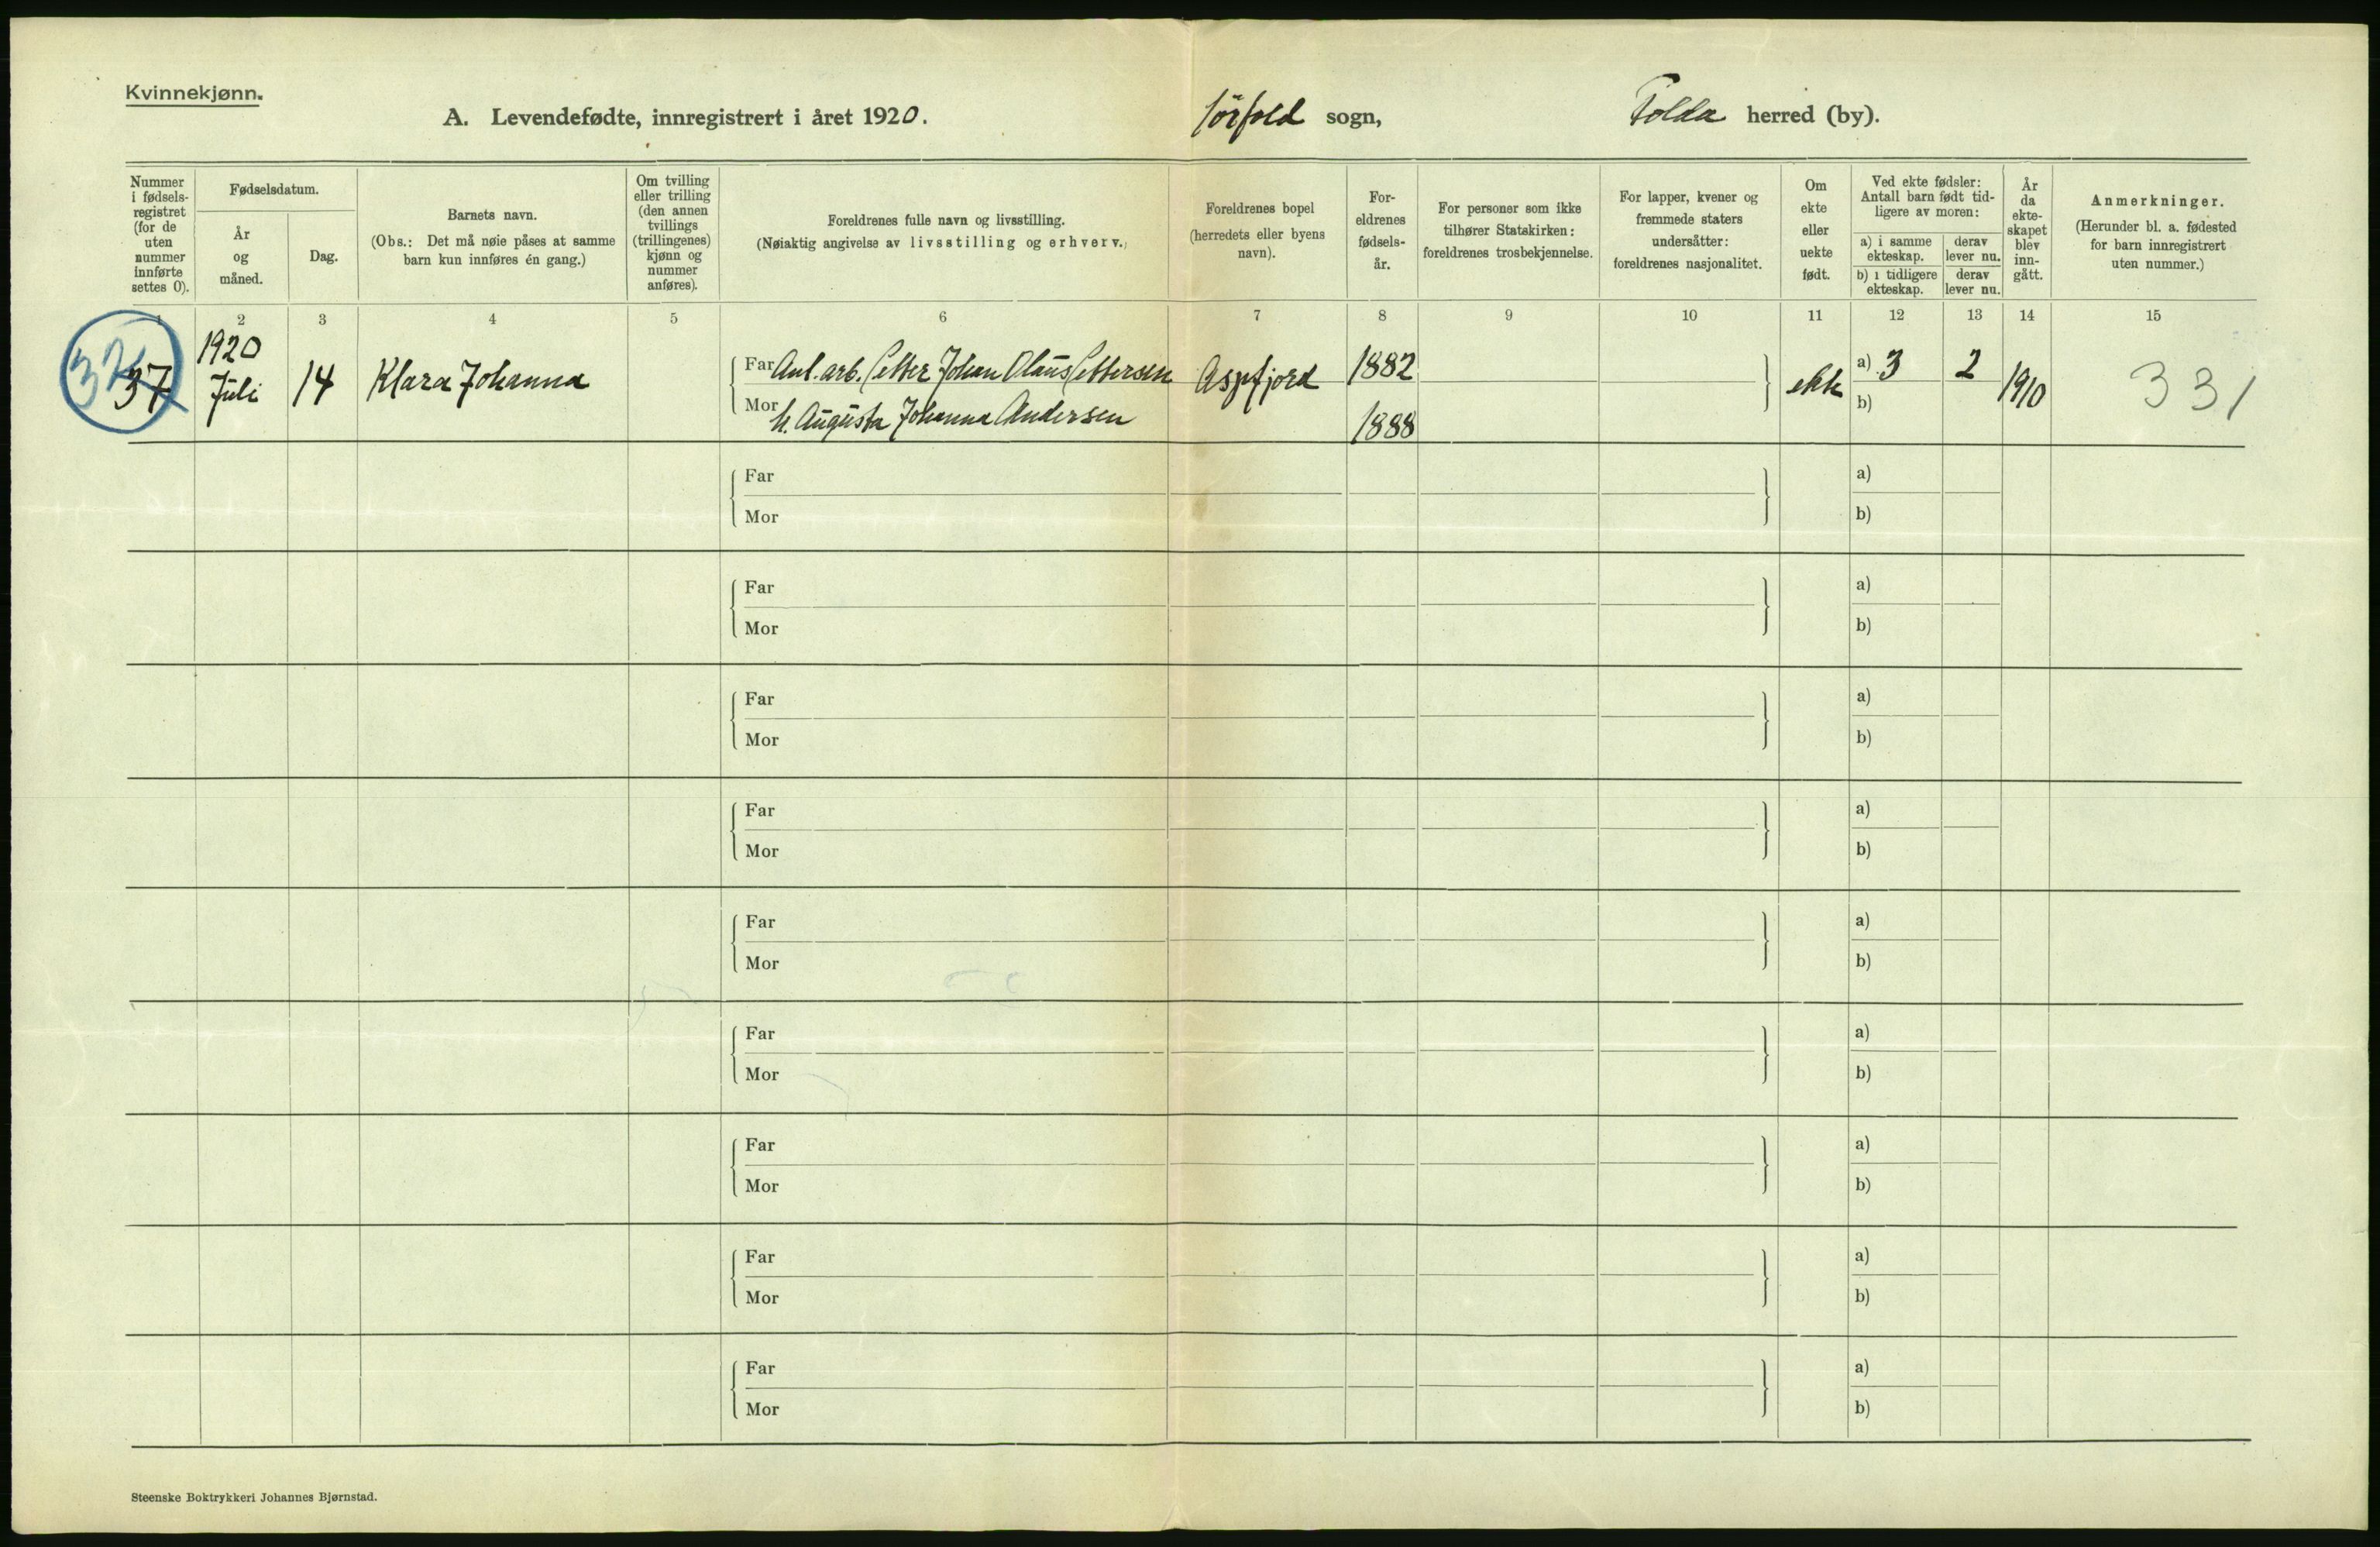 Kvinnekjønn.
A. Levendefødte, innregistrert i året 1920. Sörfold sogn, Folda herred (by).
Nummer i fødsels-registret (for de uten nummer innførte settes 0).
Fødselsdatum.
År og måned.
Dag.
Barnets navn.
(Obs.: Det må nøie påses at samme barn kun innføres én gang.)
Om tvilling eller trilling (den annen tvillings (trillingenes) kjønn og nummer anføres).
Foreldrenes fulle navn og livsstilling.
(Nøiaktig angivelse av livsstilling og erhverv.)
Foreldrenes bopel (herredets eller byens navn).
For-eldrenes fødsels-år.
For personer som ikke tilhører Statskirken: foreldrenes trosbekjennelse.
For lapper, kvener og fremmede staters undersåtter: foreldrenes nasjonalitet.
Om ekte eller uekte født.
Ved ekte fødsler: Antall barn født tid-ligere av moren:
a) i samme ekteskap.
derav lever nu.
b) i tidligere ekteskap.
derav lever nu.
År da ekte-skapet blev inn-gått.
Anmerkninger.
(Herunder bl. a. fødested for barn innregistrert uten nummer.)
1 2 3 4 5 6 7 8 9 10 11 12 13 14 15
37 1920 Juli 14 Klara Johanna
Far Anl. arb. Petter Johan Olaus Pettersen Aspfjord 1882 ekte a) 3 2 1910 331
Mor h. Augusta Johanna Andersen 1888 b)
Far a)
Mor b)
Far a)
Mor b)
Far a)
Mor b)
Far a)
Mor b)
Far a)
Mor b)
Far a)
Mor b)
Far a)
Mor b)
Far a)
Mor b)
Far a)
Mor b)
Steenske Boktrykkeri Johannes Bjørnstad.